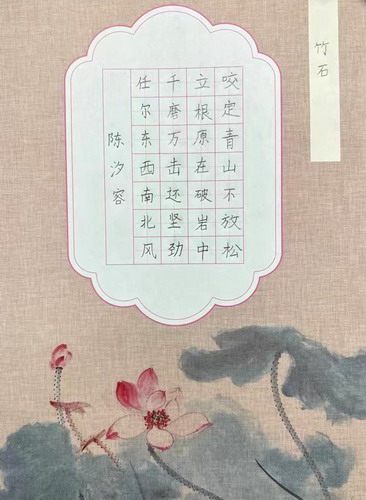 竹石
咬定青山不放松
立根原在破岩中
千磨万击还坚劲
任尔东西南北风
陈汐容